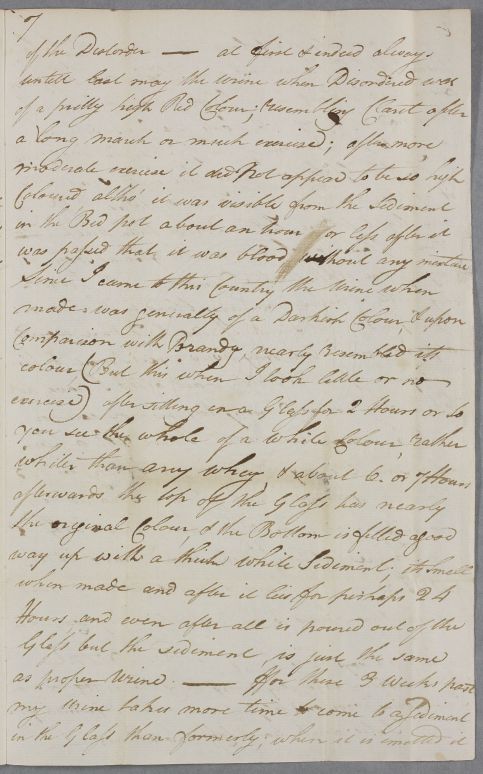 7
of the Disorder — at first & indeed always
untill last may the urine when Disordered was
of a pritty high Red Colour; resembling Claret after
a long march or much exercise; after more
moderate exercise it did Not appear to be so high
Coloured altho' it was visible from the Sediment
in the Bed pot about an hour or less after it
was passed that it was blood without any mixture
Since I came to this Country the Urine when
made was generally of a Darkish Colour, & upon
Comparison with Brandy, nearly resembled its
colour (But this when I took little or no
exercise) after sitting in a Glass for 2 Hours or so
you see the whole of a white Colour, rather
whiter than any whey, & about 6 or 7 Hours
afterwards the top of the Glass has nearly
the original Colour, & the Bottom is filled a good
way up with a thick white Sediment; its Smell
when made and after it lies for perhaps 24
Hours and even after all is poured out of the
Glass but the sediment, is just the same
as proper Urine. — ffor these 3 weeks past
my Urine takes more time to come to a Sediment
in the Glass than formerly, when it is emitted it